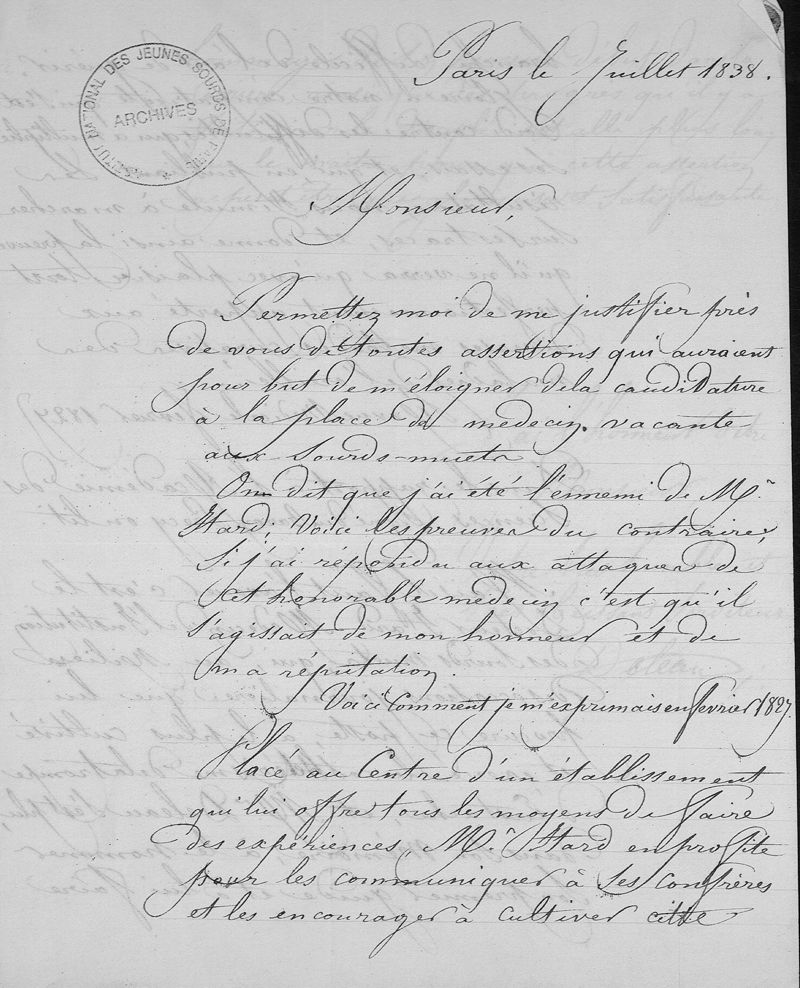 INSTITUT NATIONAL DES JEUNES SOURDS DE PARIS
ARCHIVES
Paris le Juillet 1838.
Monsieur,
Permettez moi de me justifier près
de vous de toutes assertions qui auraient
pour but de m'éloigner de la candidature
à la place de medecin. vacante
aux Sourds-muets
On dit que j'ai été l'ennemi de Mr
Itard; Voici les preuves du contraire,
Si j'ai répondu aux attaques de
cet honorable medecin c'est qu'il
s'agissait de mon honneur et de
ma réputation.
Voici comment je m'exprimais en fevrier 1827.
Placé au Centre d'un établissement
qui lui offre tous les moyens de faire
des expériences, Mr Itard en profite
pour les communiquer à ses confrères
et les encourager à cultiver cette